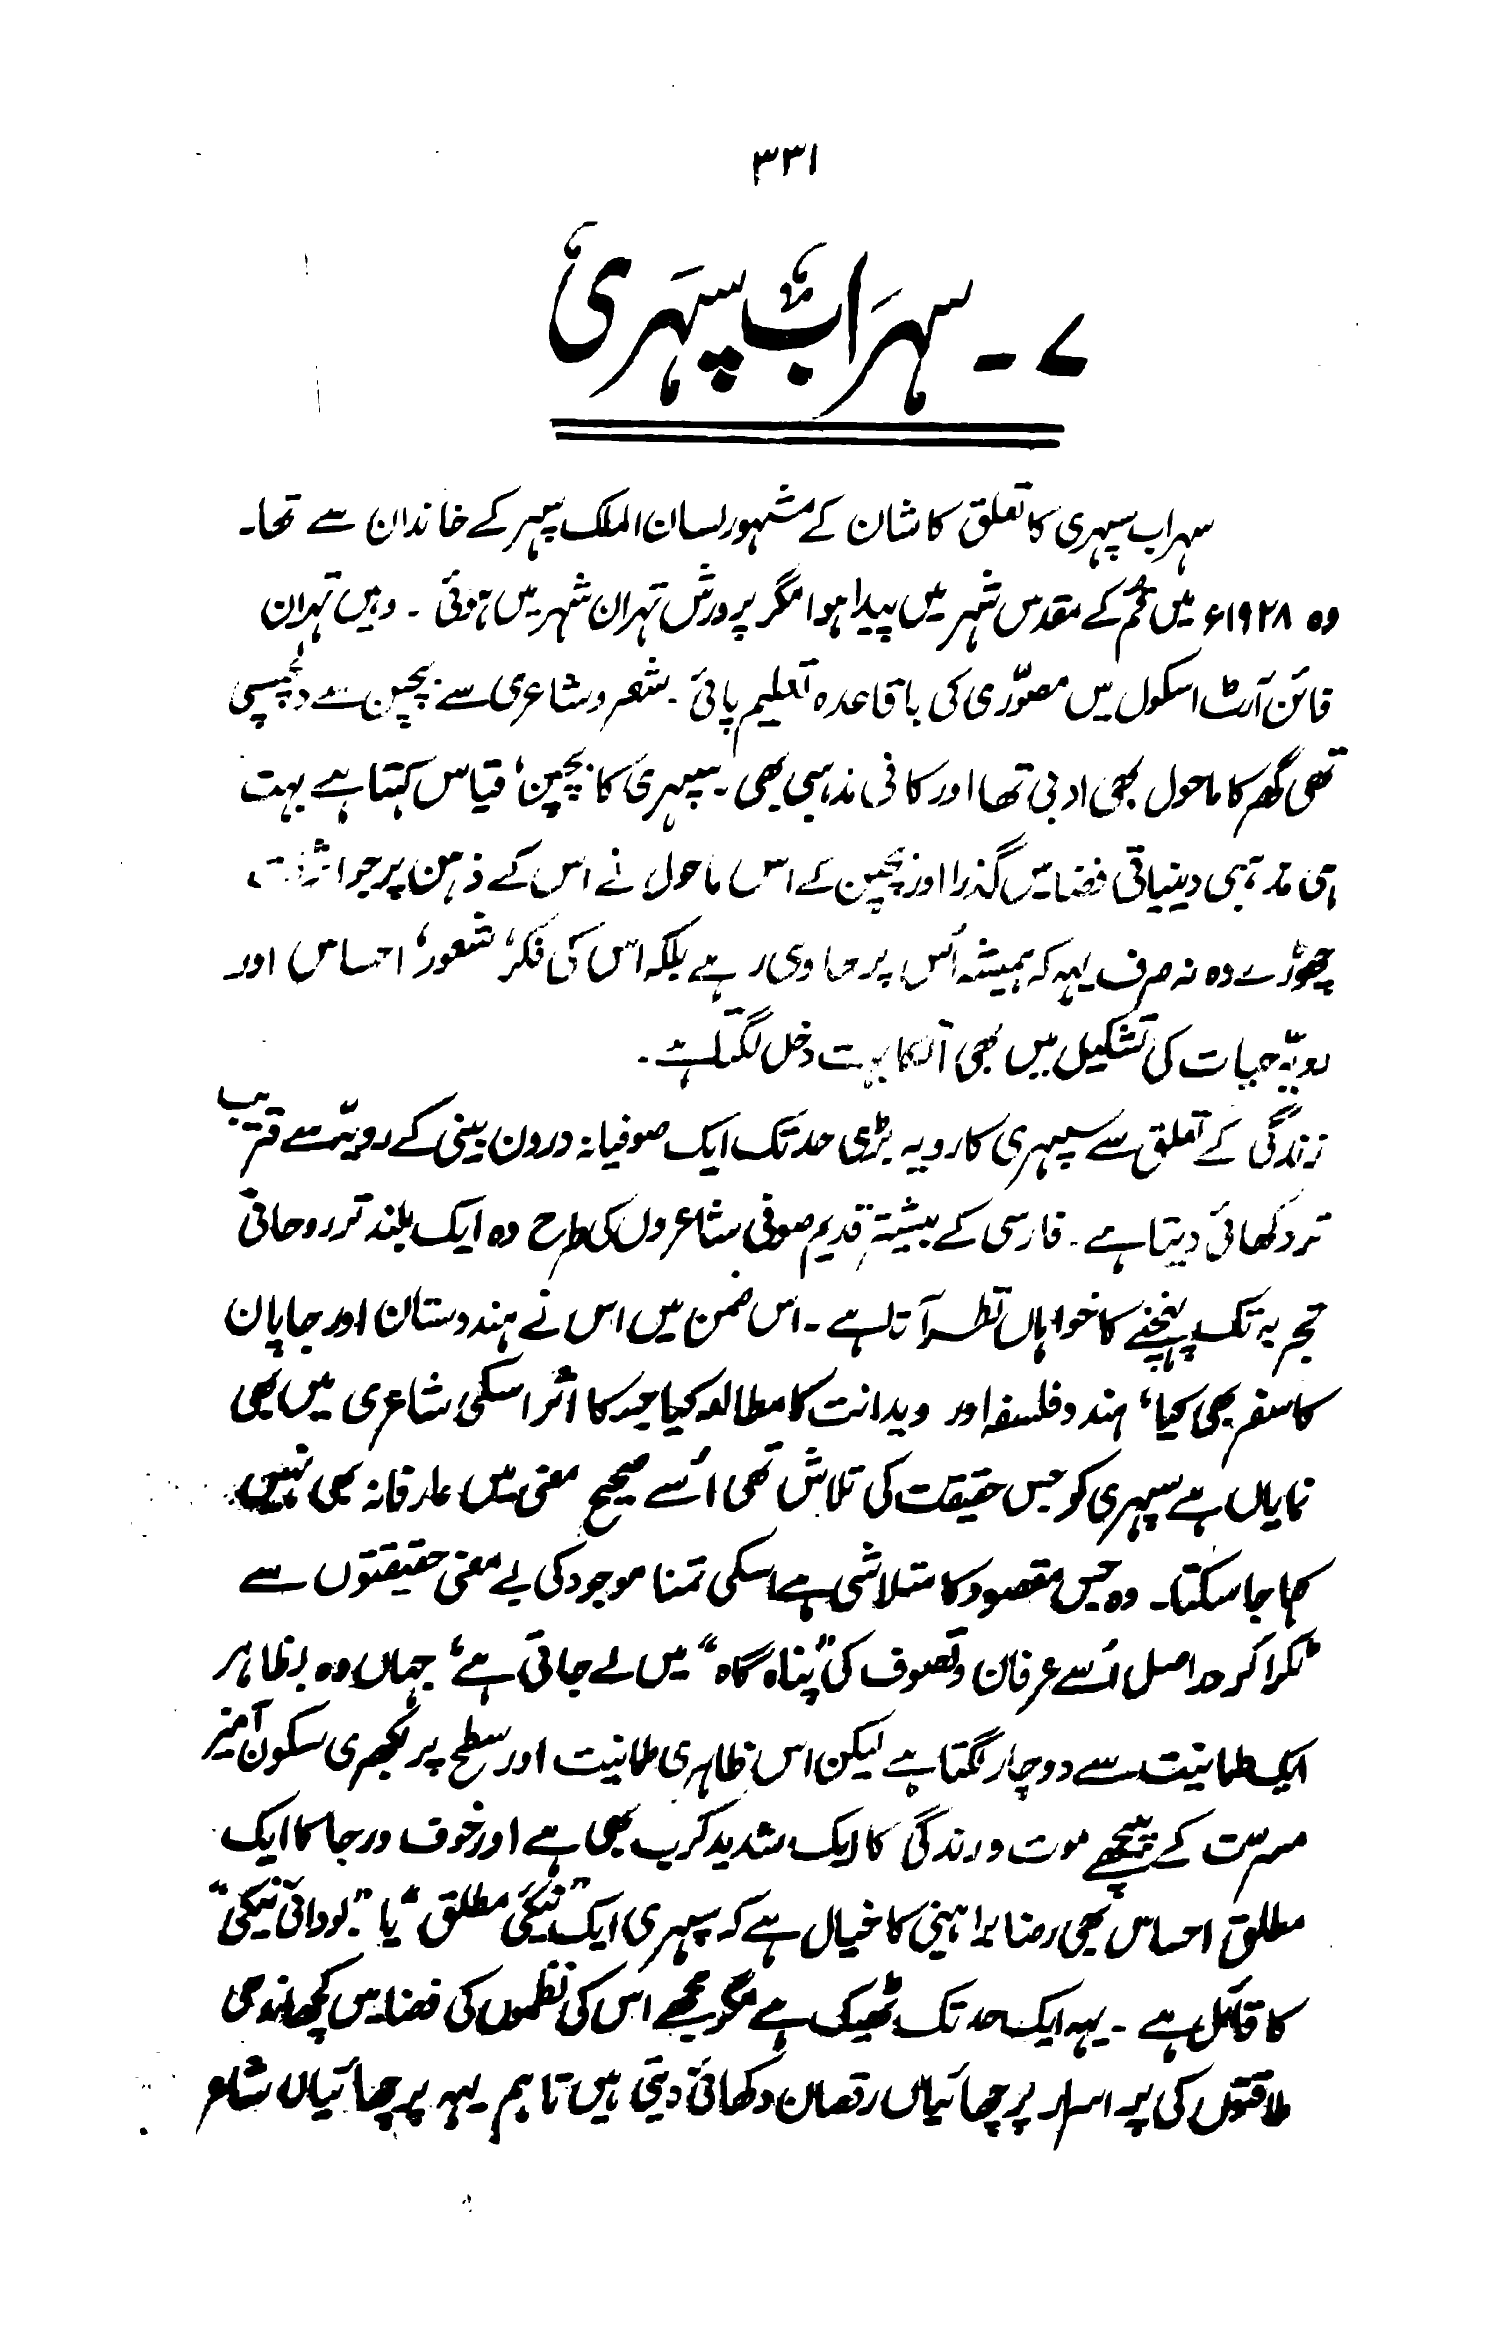 ۳۳۱
۷۔ سہراب سپہری
سہراب سپہری کا تعلق کاشان کے مشہور لسان الملک سپہر کے خاندان سے تھا۔
وہ ۱۹۲۸ء میں قُم کے مقدس شہر میں پیدا ہوا مگر پرورش تہران شہر میں ہوئی ۔ وہیں تہران
فائن آرٹ اسکول میں مصوّری کی باقاعدہ تعلیم پائی ۔ شعر و شاعری سے بچپن سے دلچسپی
تھی گھر کا ماحول بھی ادبی تھا اور کافی مذہبی بھی ۔ سپہری کا بچپن، قیاس کہتا ہے بہت
ہی مذہبی دینیاتی فضا میں گذرا اور بچپن کے اس ماحول نے اس کے ذہن پر جو اثرات
چھوڑے وہ نہ صرف یہہ کہ ہمیشہ اُس پر حاوی رہے بلکہ اس کی فکر، شعور، احساس اور
رویّہ حیات کی تشکیل میں بھی اُنکا بہت دخل لگتا ہے ۔
زندگی کے تعلق سے سپہری کا رویہ بڑی حد تک ایک صوفیانہ درون بینی کے رویّہ سے قریب
تر دکھائی دیتا ہے ۔ فارسی کے بیشتر قدیم صوفی شاعروں کی طرح وہ ایک بلند تر روحانی
تجربہ تک پہنچنے کا خواہاں نظر آتا ہے ۔ اس ضمن میں اس نے ہندوستان اور جاپان
کا سفر بھی کیا، ہندو فلسفہ اور ویدانت کا مطالعہ کیا جس کا اثر اسکی شاعری میں بھی
نمایاں ہے سپہری کو جس حقیقت کی تلاش تھی اُسے صحیح معنی میں عارفانہ بھی نہیں
کہا جا سکتا۔ وہ جس مقصود کا متلاشی ہے اسکی تمنا موجود کی بے معنی حقیقتوں سے
ٹکرا کر دراصل اُسے عرفان و تصوف کی "پناہ گاہ" میں لے جاتی ہے، جہاں وہ بظاہر
ایک طمانیت سے دوچار لگتا ہے لیکن اس ظاہری طمانیت اور سطح پر بکھری سکون آمیز
مسرت کے پیچھے موت و زندگی کا ایک شدید کرب بھی ہے اور خوف و رجا کا ایک
مطلق احساس بھی رضا براہینی کا خیال ہے کہ سپہری ایک "نیکیٔ مطلق" یا "بودائی نیکی"
کا قائل ہے ۔ یہہ ایک حد تک ٹھیک ہے مگر مجھے اس کی نظموں کی فضا میں کچھ اندوہی
طاقتوں کی پر اسرار پرچھائیاں رقصان دکھائی دیتی ہیں تاہم یہہ پرچھائیاں شاعر